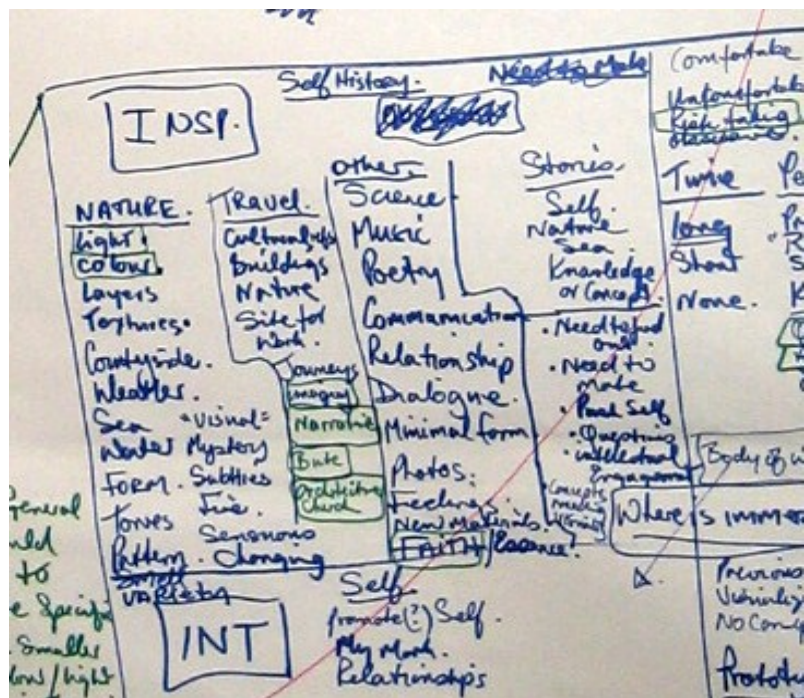 Self History.
Need to Make
INSP.
NATURE.
Light.
Colour.
Layers
Textures.
Countryside.
Weather.
Sea
Water
FORM.
Tones
Pattern.
Small
VARIETY
"Visual"
Mystery
Subtleties
Sensuous
Changing
Travel.
Buildings
Nature
Site for
Work.
Journeys
Imaginary
Narrative
Bute
Architecture
Church
Other.
Science
Music
Poetry
Communication
Relationship
Dialogue.
Minimal form
Photos.
Feelings.
New Materials.
FAITH / Essence?
Stories.
Self.
Nature
Sea.
Knowledge
or Concept.
• Need to find
out.
• Need to
make
• Self
• Questions
• intellectual
Engagement
• Concepts
Comfortable
Uncomfortable
Risk taking
Time
long
Short
None.
Body of w
Where is immer
Previous
Visualiz
No Conce
Prototy
INT
Self
promote(?) Self.
My Mark.
Relationships
general
to
e Specific
Smaller
/ light